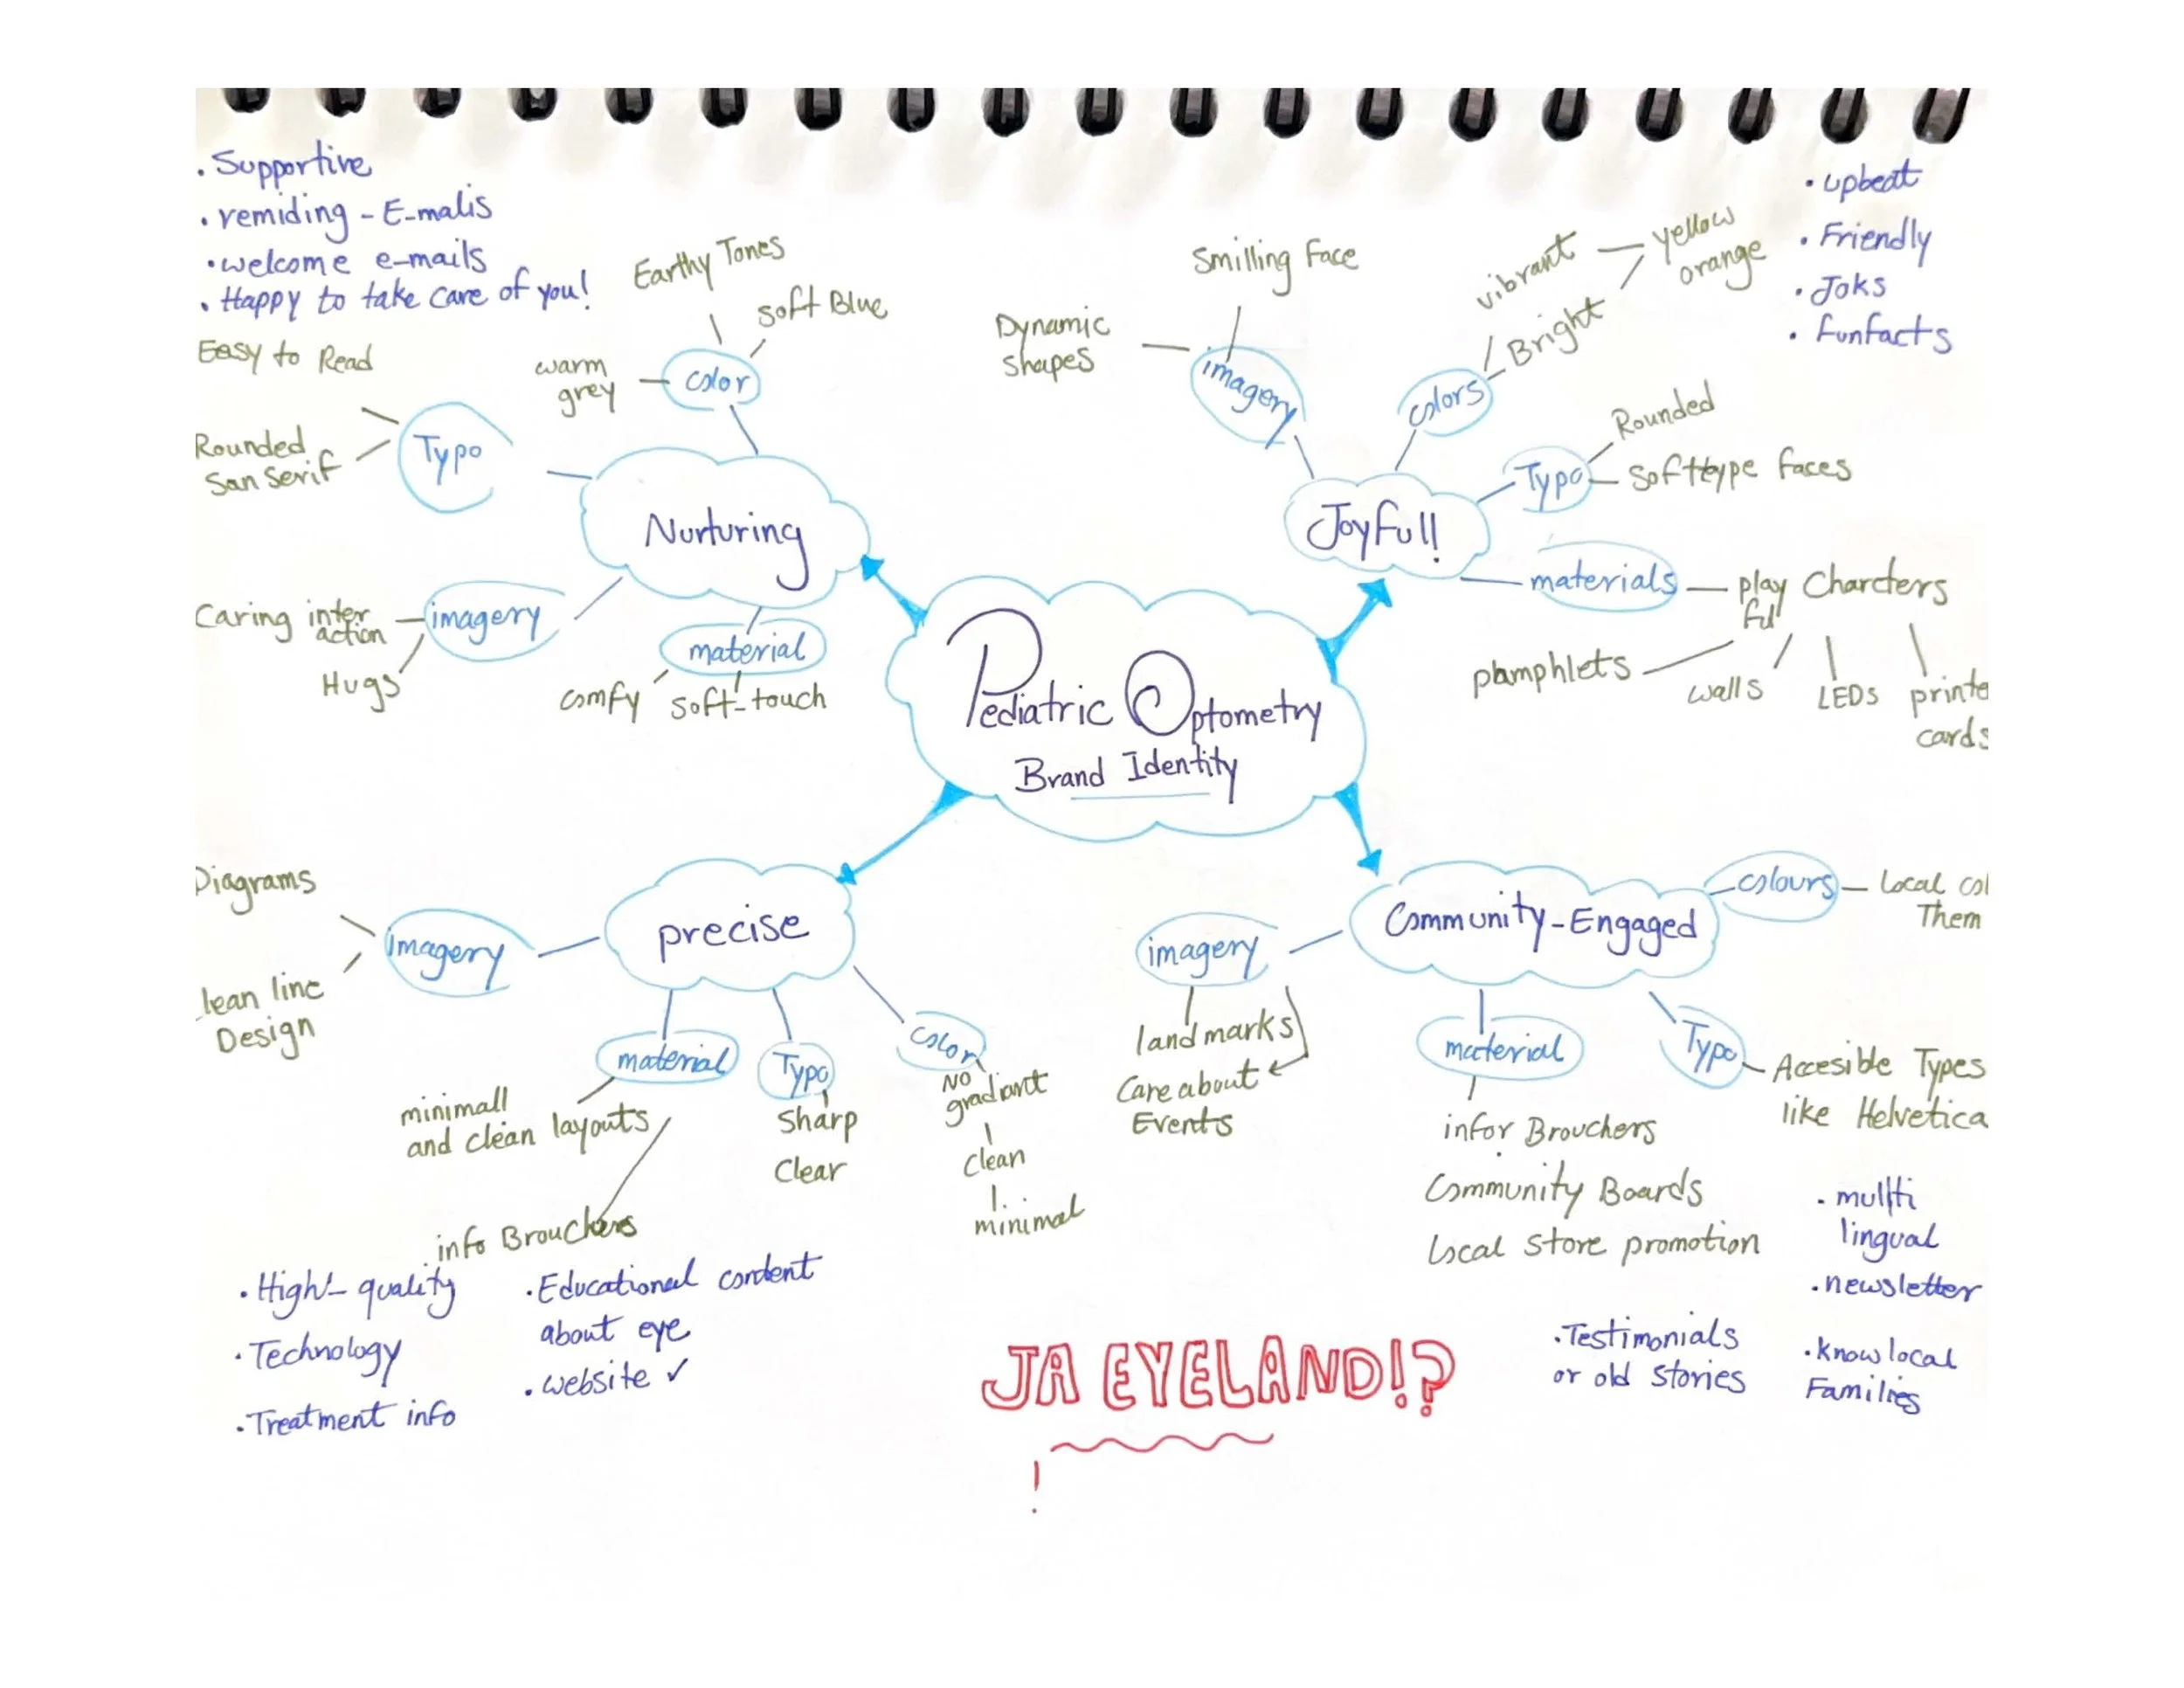 . Supportive
. remiding - E-malis
. welcome e-mails
. Happy to take care of you!
Easy to Read
Rounded
San Serif
Typo
Earthy Tones
soft Blue
warm
grey
color
Nurturing
Caring inter
action
Hugs
imagery
material
comfy
soft-touch
Smilling Face
Dynamic
shapes
imagery
vibrant
Bright
yellow
orange
colors
. upbeat
. Friendly
. Joks
. Funfacts
Rounded
Typo
Softtype faces
Joyfull!
materials
play
ful
Charcters
pamphlets
walls
LEDs
printe
cards
Pediatric Optometry
Brand Identity
Diagrams
lean line
Design
imagery
precise
material
minimall
and clean layouts
info Brouchers
Typo
Sharp
Clear
color
No
gradiant
clean
minimal
. High-quality
. Technology
. Treatment info
. Educational content
about eye
. website ✓
Community-Engaged
colours
Local col
Them
imagery
landmarks
Care about
Events
material
infor Brouchers
Community Boards
Local store promotion
Typo
Accesible Types
like Helvetica
. multi
lingual
. newsletter
. know local
Families
. Testimonials
or old stories
JA EYELAND!?
!